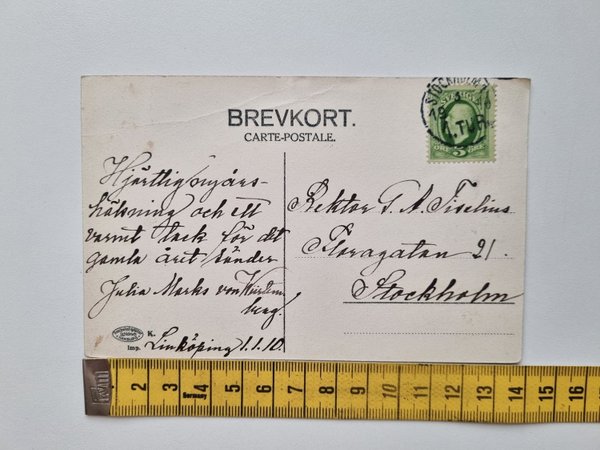 BREVKORT.
CARTE-POSTALE.
STOCKHOLM
1.TUR.
5 ÖRE
Hjärtlig nyårs-
hälsning och ett
varmt tack för det
gamla året sänder
Julia Marks von Würtem-
berg.
K.
Imp. Linköping 1.1.10.
Rektor G. A. Tiselius
Floragatan 21.
Stockholm
2 3 4 5 6 7 8 9 10 11 12 13 14 15 16
Germany